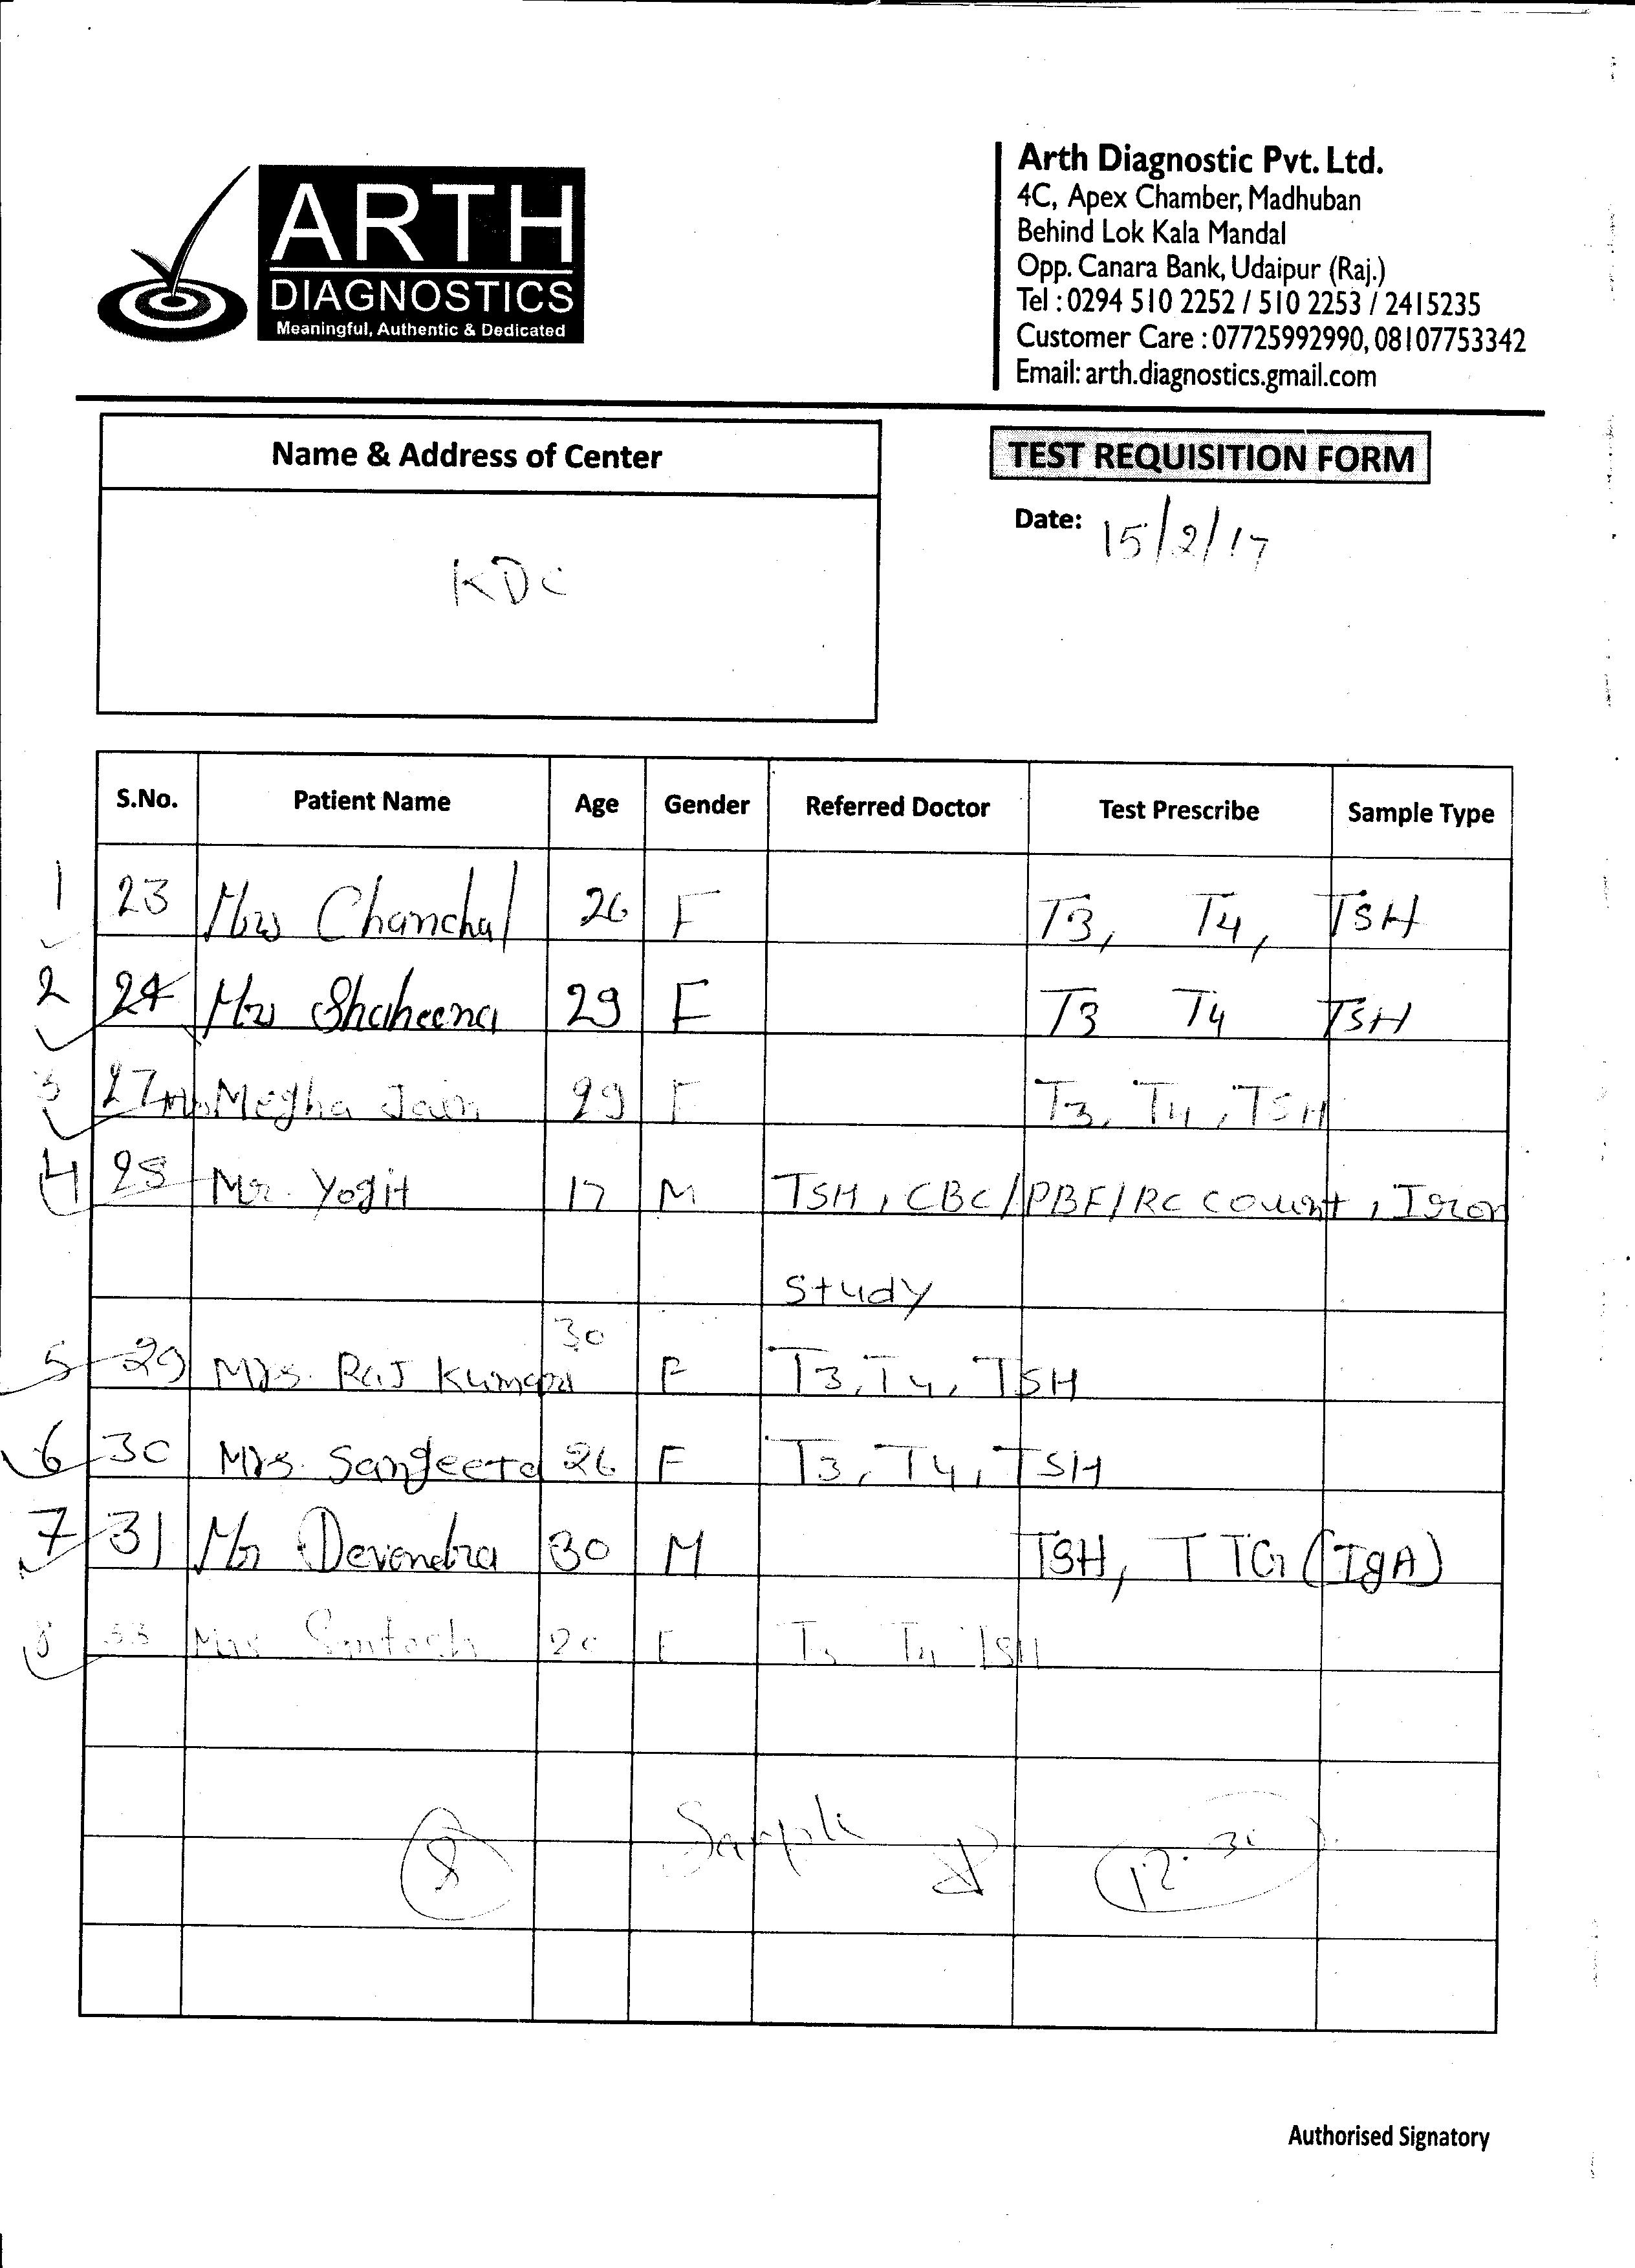 ARTH
DIAGNOSTICS
Meaningful, Authentic & Dedicated
Arth Diagnostic Pvt. Ltd.
4C, Apex Chamber, Madhuban
Behind Lok Kala Mandal
Opp. Canara Bank, Udaipur (Raj.)
Tel : 0294 510 2252 / 510 2253 / 2415235
Customer Care : 07725992990, 08107753342
Email: arth.diagnostics.gmail.com
Name & Address of Center
KDC
TEST REQUISITION FORM
Date: 15/2/17
S.No. Patient Name Age Gender Referred Doctor Test Prescribe Sample Type
1 23 Mrs Chanchal 26 F T3, T4, TSH
2 24 Mrs Shaheena 29 F T3 T4 TSH
3 27 Megha Jain 29 F T3, T4, TSH
4 28 Mr. Yogit 17 M TSH, CBC/PBF/RC count, Iron
study
5 29 Mrs. Raj Kumari 30 F T3, T4, TSH
6 30 Mrs. Sangeeta 26 F T3, T4, TSH
7 31 Mr Devendra 30 M TSH, TTG (IgA)
8 33 Mrs Santosh F T3 T4 TSH
8 Sample
Authorised Signatory